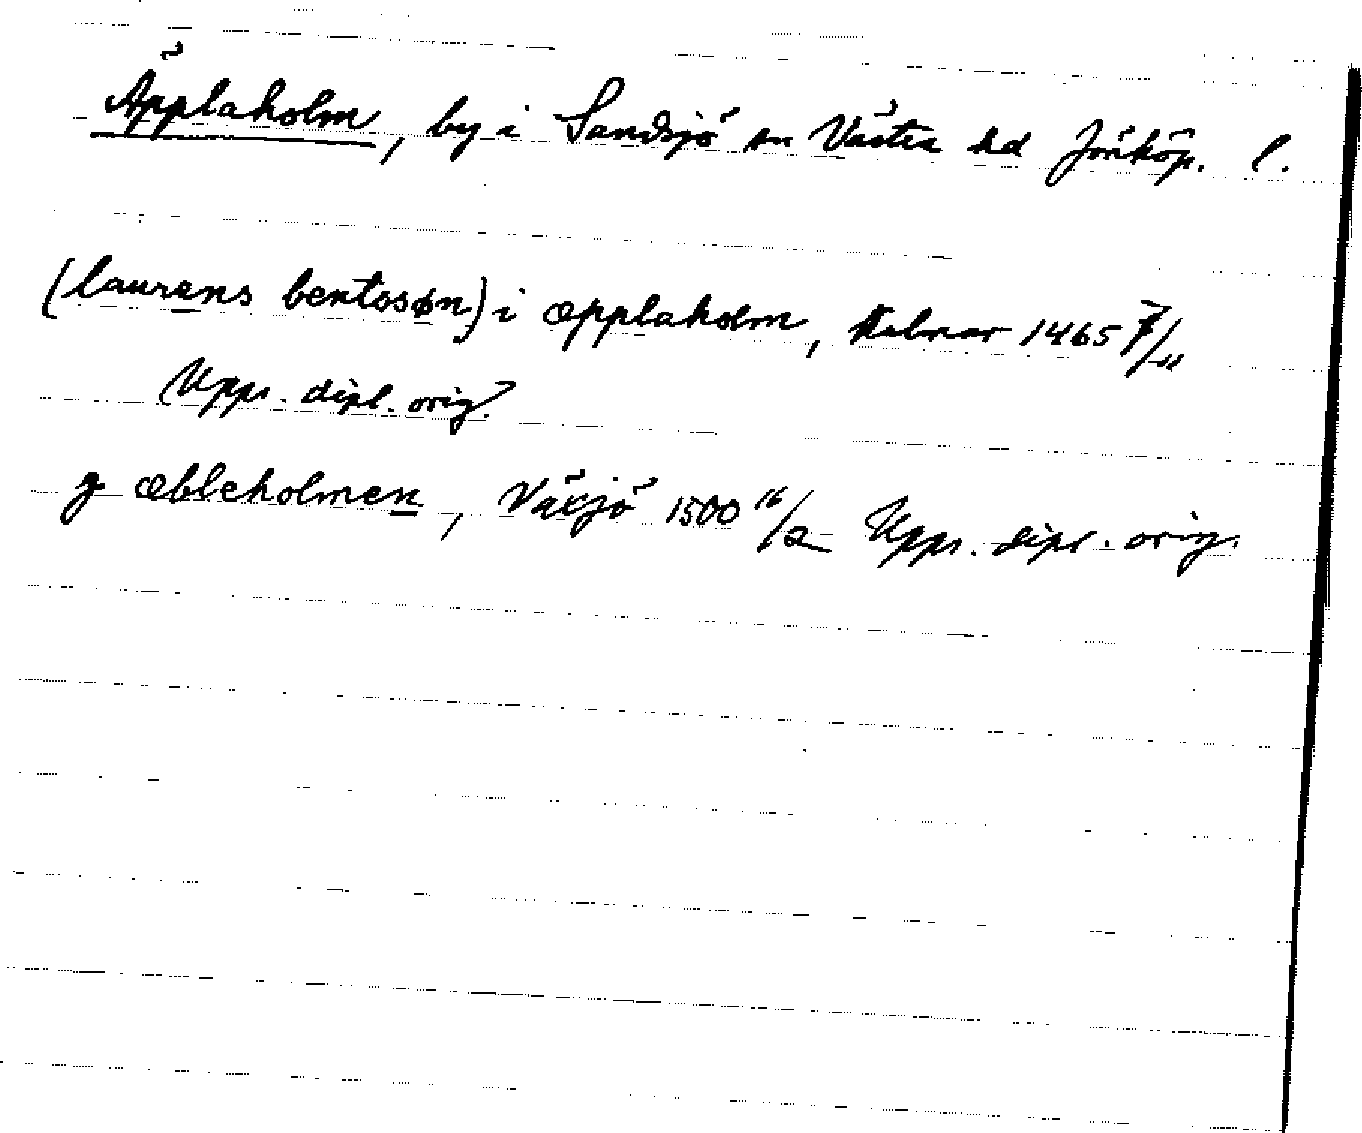 Äpplaholm, by i Sandsjö sn Västra hd Jönköp. l.
(laurens bentosøn) i æpplaholm, Kalmar 1465 7/11
Upps. dipl. orig.
j æbleholmen, Växjö 1500 16/2 Upps. dipl. orig.